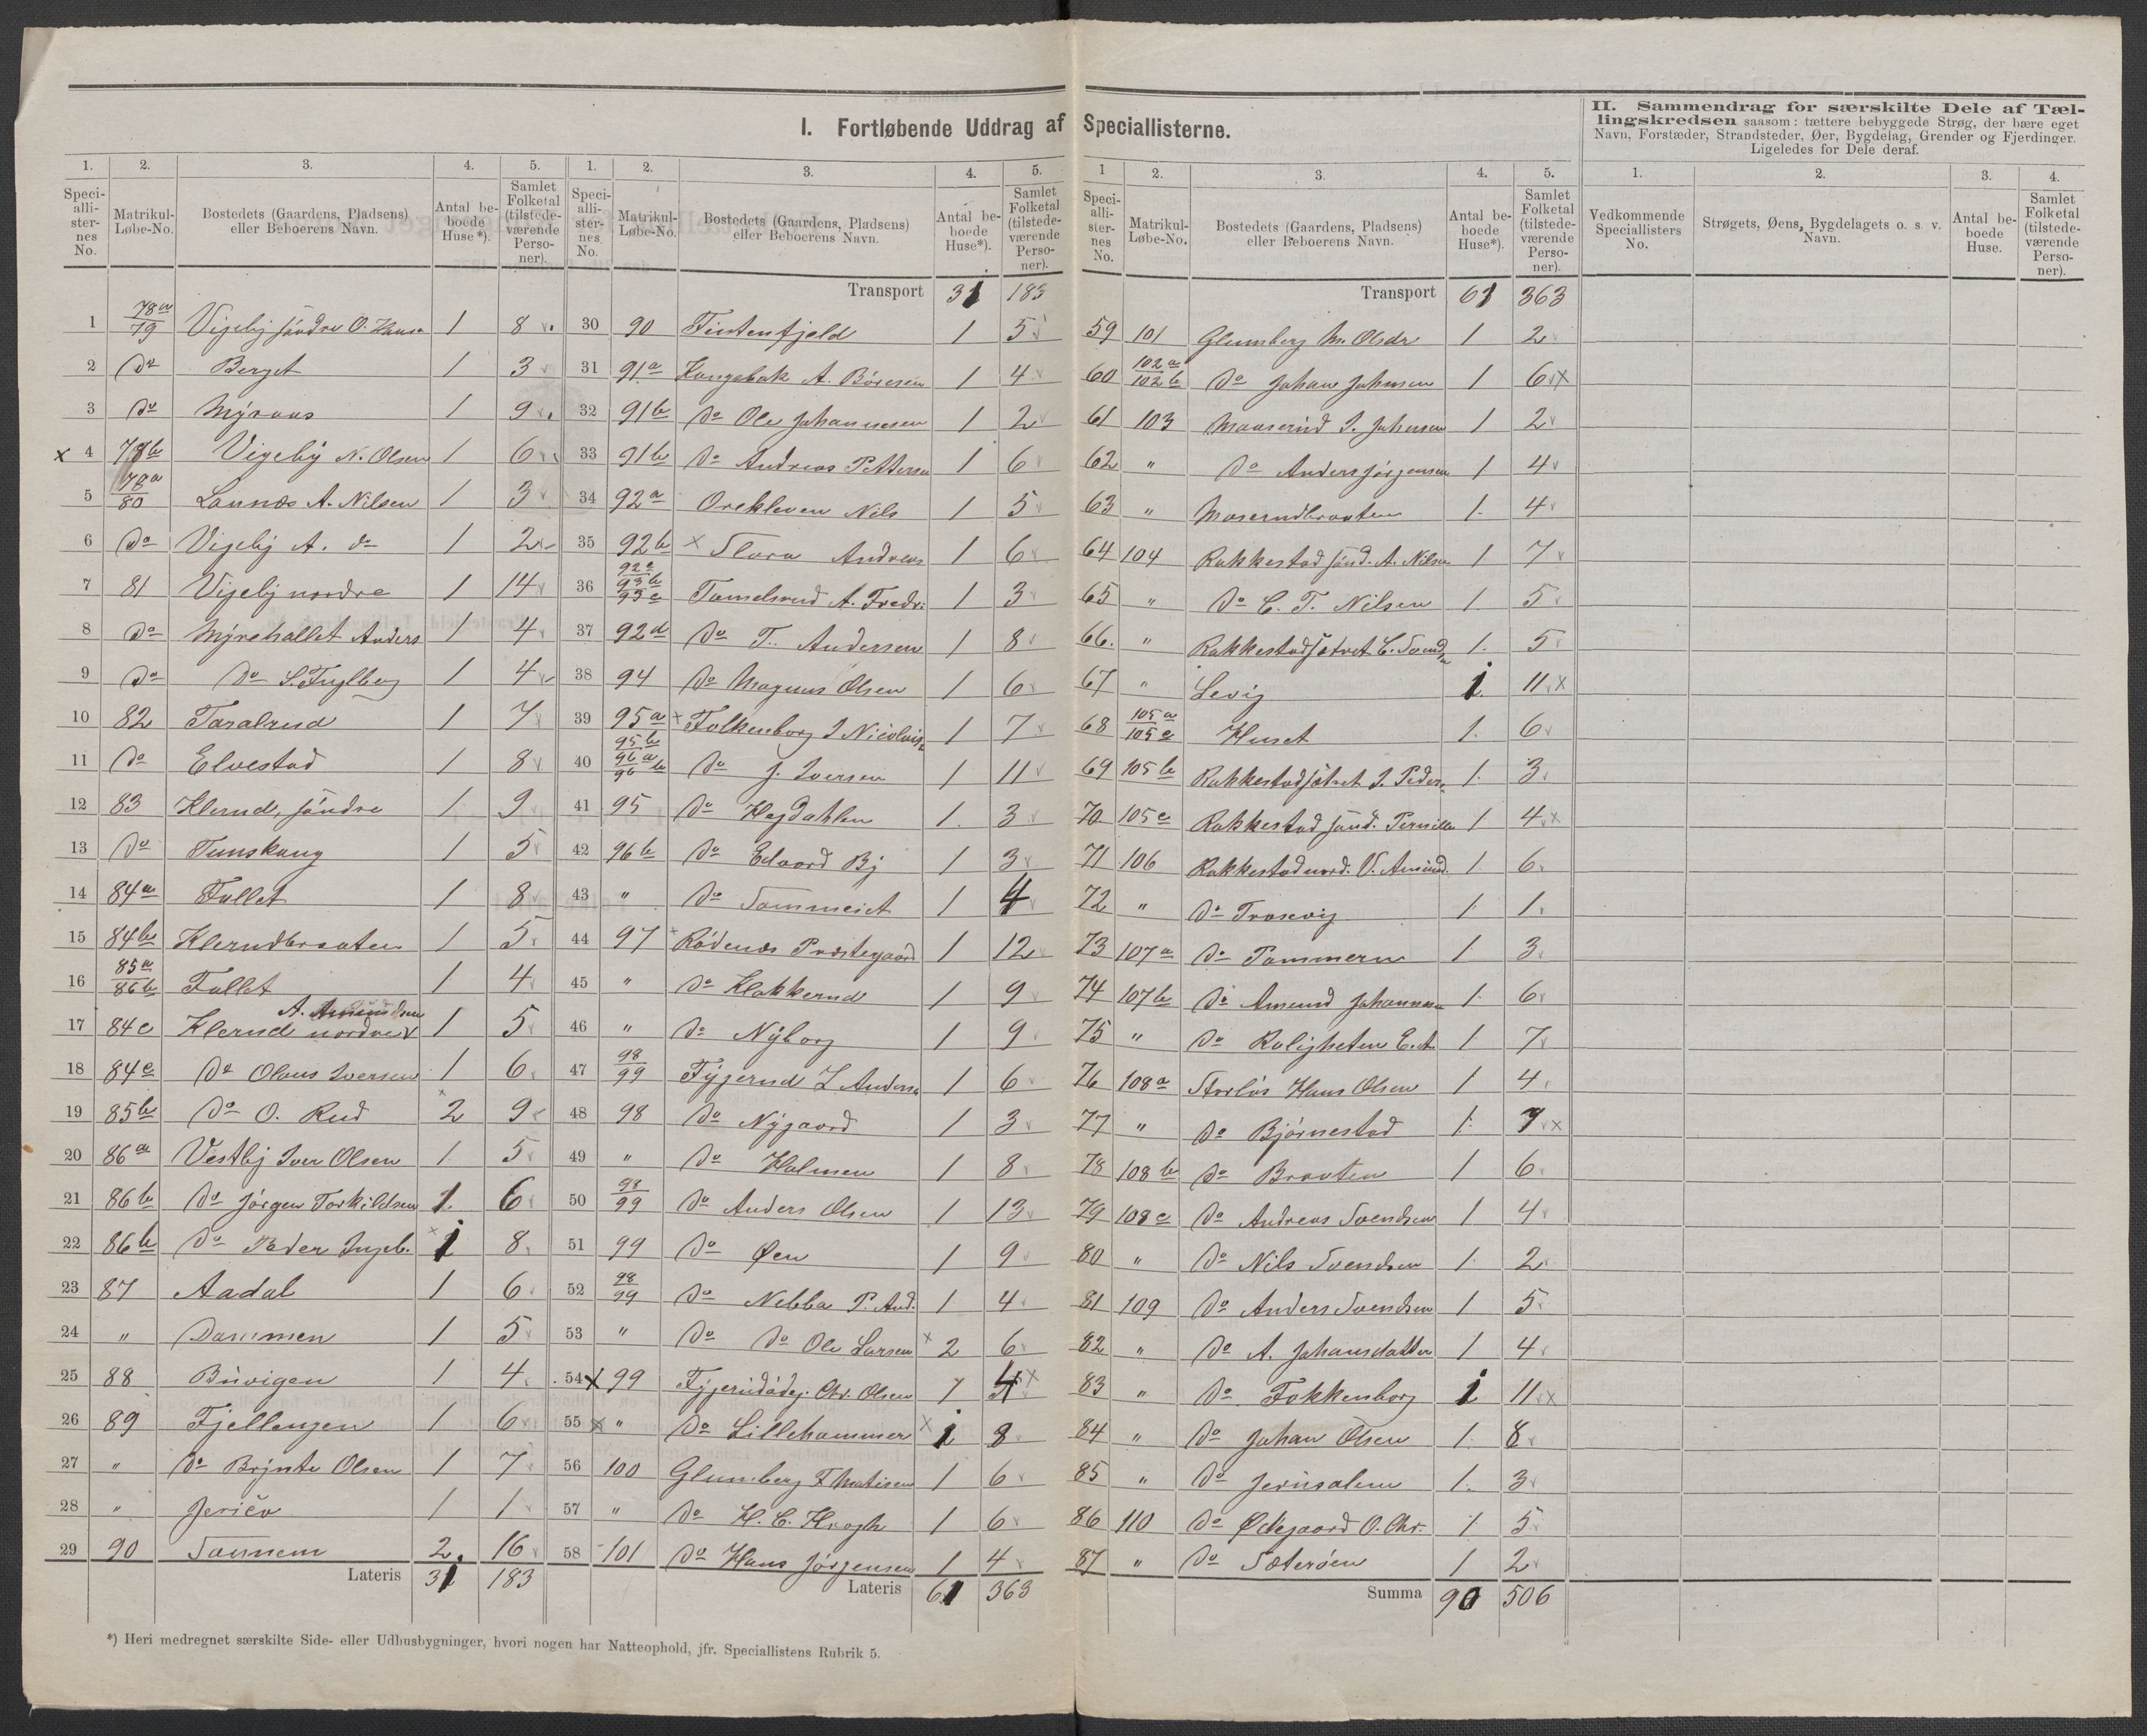 I. Fortløbende Uddrag af Speciallisterne.
II. Sammendrag for særskilte Dele af Tæl-
lingskredsen saasom: tættere bebyggede Strøg, der bære eget
Navn, Forstæder, Strandsteder, Øer, Bygdelag, Grender og Fjerdinger.
Ligeledes for Dele deraf.
1. 2. 3. 4. 5.
Speci-alli-ster-nes No. Matrikul-Løbe-No. Bostedets (Gaardens, Pladsens) eller Beboerens Navn. Antal be-boede Huse*). Samlet Folketal (tilstede-værende Perso-ner).
1 78a/79 Vigeby søndre O. Hans 1 8
2 Do Berget 1 3
3 Do Myraas 1 9
x 4 78b Vigeby N. Olsen 1 6
5 78a/80 Launæs A. Nilsen 1 3
6 Do Vigeby A. do 1 2
7 81 Vigeby nordre 1 14
8 Do Myrehallet Anders 1 4
9 Do Do S. Fuglberg 1 4
10 82 Taralrud 1 7
11 Do Elvestad 1 8
12 83 Klerud, søndre 1 9
13 Do Tunskaug 1 5
14 84a Fallet 1 8
15 84b Klerudbraaten 1 5
16 85a/86b Fallet 1 4
A. Amundsen
17 84c Klerud nordre 1 5
18 84c Do Olaus Iversen 1 6
19 85b Do O. Rud x 2 9
20 86a Vestby Iver Olsen 1 5
21 86b Do Jørgen Torkildsen 1 6
22 86b Do Peder Ingeb. x 1 8
23 87 Aadal 1 6
24 " Dammen 1 5
25 88 Buvigen 1 4
26 89 Fjellengen 1 6
27 " Do Brynte Olsen 1 7
28 " Jerico 1 1
29 90 Sannem 2 16
Lateris 31 183
1. 2. 3. 4. 5.
Speci-alli-ster-nes No. Matrikul-Løbe-No. Bostedets (Gaardens, Pladsens) eller Beboerens Navn. Antal be-boede Huse*). Samlet Folketal (tilstede-værende Perso-ner).
Transport 31 183
30 90 Tintenfjeld 1 5
31 91a Kangebak A. Børesen 1 4
32 91b Do Ole Johannesen 1 2
33 91b Do Andreas Pettersen 1 6
34 92a Orekleven Nils 1 5
35 92b x Slora Andreas 1 6
36 92c/93b/93c Tomelsrud A. Fredr: 1 3
37 92d Do T. Andersen 1 8
38 94 Do Magnus Olsen 1 6
39 95a x Folkenborg I Nicolais 1 7
40 95b/96a/96b Do J. Iversen 1 11
41 95 Do Hegdahlen 1 3
42 96b Do Edvard By 1 3
43 " Do Sommeict 1 4
44 97 x Rødenæs Præstegaard 1 12
45 " Do Klokkerud 1 9
46 " Do Nyborg 1 9
47 98/99 Tygerud L Anders 1 6
48 98 Do Nygaard 1 3
49 " Do Holmen 1 8
50 98/99 Do Anders Olsen 1 13
51 99 Do Øen 1 9
52 98/99 Do Nebba P. And. 1 4
53 " Do Do Ole Larsen x 2 6
54 x 99 Tygerudødeg. Chr. Olsen 1 4 x
55 x " Do Lillehammer x 1 8
56 100 Glumberg F Matisen 1 6
57 " Do H. C. Krogh 1 6
58 101 Do Hans Jørgensen 1 4
Lateris 61 363
1 2. 3. 4. 5.
Speci-alli-ster-nes No. Matrikul-Løbe-No. Bostedets (Gaardens, Pladsens) eller Beboerens Navn. Antal be-boede Huse*). Samlet Folketal (tilstede-værende Perso-ner).
Transport 61 363
59 101 Glumberg M. Olsdr 1 2
60 102a/102b Do Johan Johnsen 1 6 x
61 103 Maaserud I. Johnsen 1 2
62 " Do Anders Jørgensen 1 4
63 " Moserudbraaten 1 4
64 104 Rakkestad sønd. A. Nilsen 1 7
65 " Do C. T. Nilsen 1 5
66. " Rakkestadsætret C. Svends 1 5
67 " Levig 1 11 x
68 105a/105c Huset 1 6
69 105b Rakkestadsætret I. Peders. 1 3
70 105c Rakkestad sønd. Pernille 1 4 x
71 106 Rakkestad nord. O. Amund. 1 6
72 " Do Trosvig 1 1
73 107a Do Pommern 1 3
74 107b Do Amund Johannesen 1 6
75 " Do Roligheten E. A. 1 7
76 108a Storløs Hans Olsen 1 4
77 " Do Bjørnestad 1 7 x
78 108b Do Braaten 1 6
79 108c Do Andreas Svendsen 1 4
80 " Do Nils Svendsen 1 2
81 109 Do Anders Svendsen 1 5
82 " Do A. Johansdatter 1 4
83 " Do Fokkenborg 1 11 x
84 " Do Johan Olsen 1 8
85 " Do Jerusalem 1 3
86 110 Do Ødegaard O. Chr. 1 5
87 " Do Sæterøen 1 2
Summa 90 506
1. 2. 3. 4.
Vedkommende Speciallisters No. Strøgets, Øens, Bygdelagets o. s. v. Navn. Antal be-boede Huse. Samlet Folketal (tilstede-værende Perso-ner).
*) Heri medregnet særskilte Side- eller Udhusbygninger, hvori nogen har Natteophold, jfr. Speciallistens Rubrik 5.